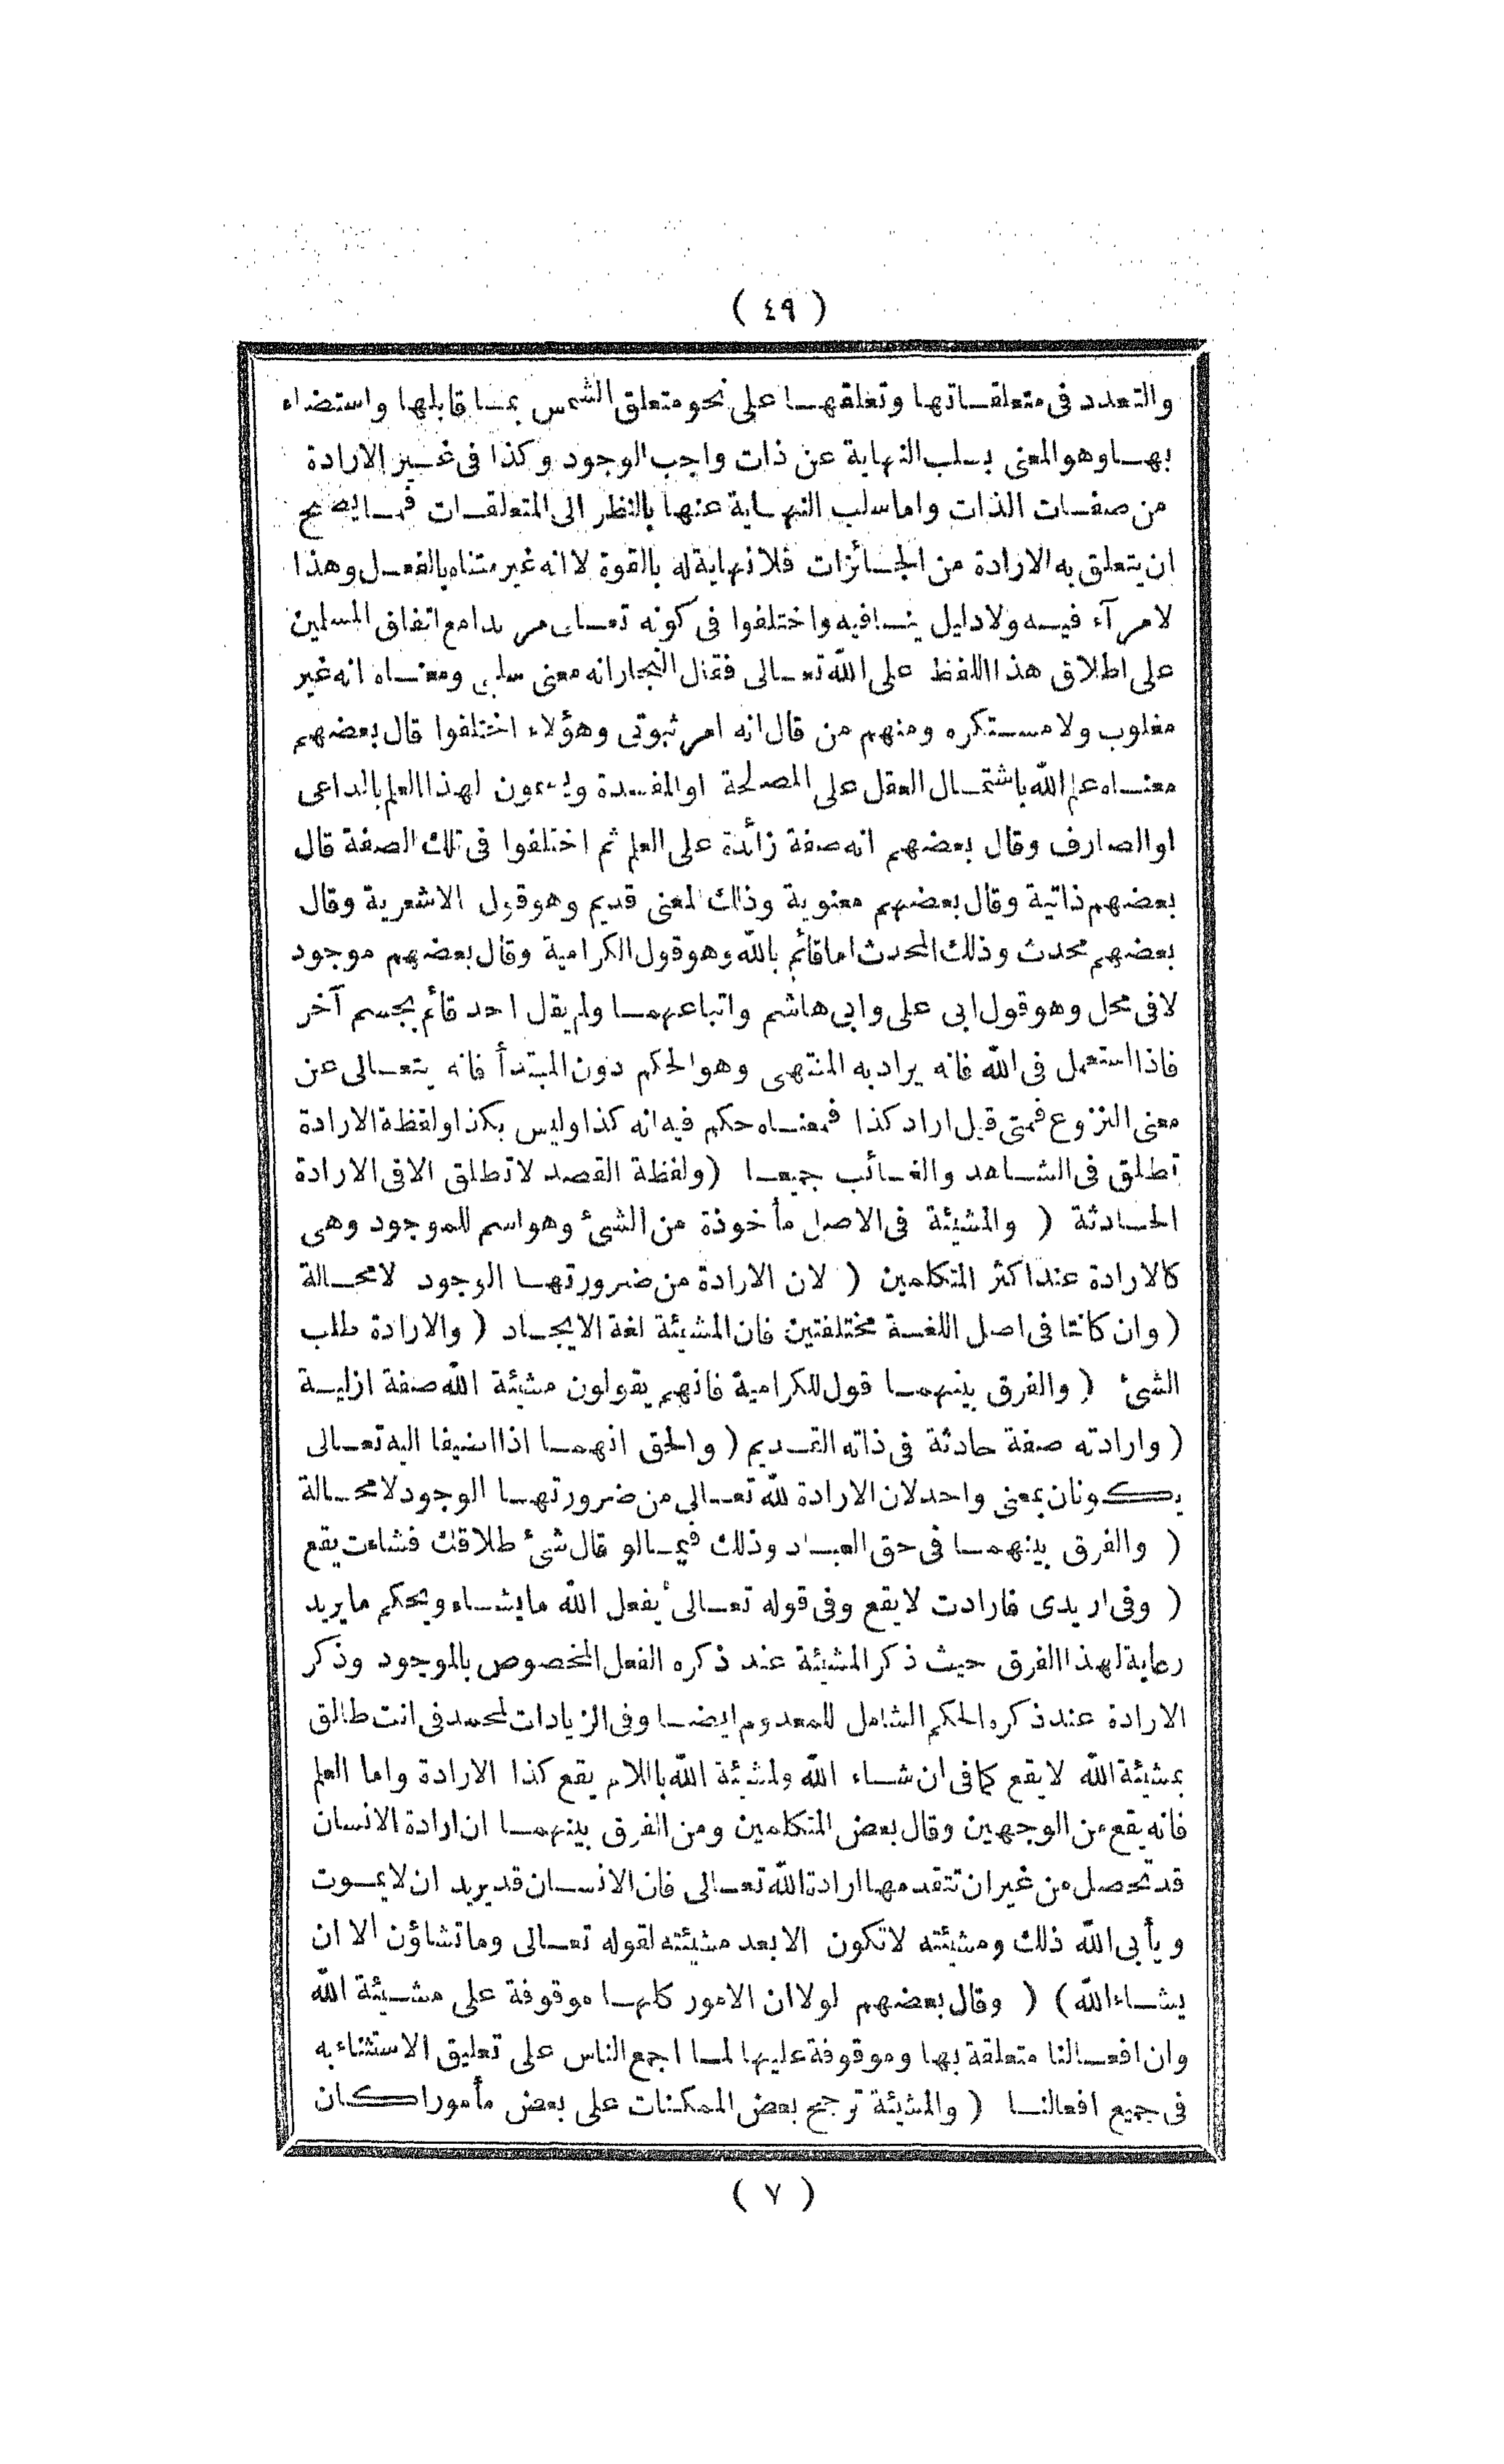 ( ٤٩ )
والتعدد فى متعلقاتها وتعلقها على نحو متعلق الشمس بما قابلها واستضاء
بها وهو المعنى بسلب النهاية عن ذات واجب الوجود وكذا فى غير الارادة
من صفات الذات واما سلب النهاية عنها بالنظر الى المتعلقات فما يصح
ان يتعلق به الارادة من الجائزات فلا نهاية له بالقوة لا انه غير متناه بالفعل وهذا
لا مرآء فيه ولا دليل ينافيه واختلفوا فى كونه تعالى مريدا مع اتفاق المسلمين
على اطلاق هذا اللفظ على الله تعالى فقال النجار انه معنى سلبى ومعناه انه غير
مغلوب ولا مستكره ومنهم من قال انه امر ثبوتى وهؤلاء اختلفوا قال بعضهم
معناه علم الله باشتمال العقل على المصلحة او المفسدة ويسمون لهذا العلم بالداعى
او الصارف وقال بعضهم انه صفة زائدة على العلم ثم اختلفوا فى تلك الصفة قال
بعضهم ذاتية وقال بعضهم معنوية وذلك المعنى قديم وهو قول الاشعرية وقال
بعضهم محدث وذلك المحدث اما قائم بالله وهو قول الكرامية وقال بعضهم موجود
لا فى محل وهو قول ابى على وابى هاشم واتباعهما ولم يقل احد قائم بجسم آخر
فاذا استعمل فى الله فانه يراد به المنتهى وهو الحكم دون المبتدأ فانه يتعالى عن
معنى النزوع فمتى قيل اراد كذا فمعناه حكم فيه انه كذا وليس بكذا ولفظة الارادة
تطلق فى الشاهد والغائب جميعا (ولفظة القصد لا تطلق الا فى الارادة
الحادثة ( والمشيئة فى الاصل مأخوذة من الشىء وهو اسم للموجود وهى
كالارادة عند اكثر المتكلمين ( لان الارادة من ضرورتها الوجود لا محالة
(وان كانتا فى اصل اللغة مختلفتين فان المشيئة لغة الايجاد ( والارادة طلب
الشىء ( والفرق بينهما قول للكرامية فانهم يقولون مشيئة الله صفة ازلية
( وارادته صفة حادثة فى ذاته القديم ( والحق انهما اذا اضيفا اليه تعالى
يكونان بمعنى واحد لان الارادة لله تعالى من ضرورتها الوجود لا محالة
( والفرق بينهما فى حق العباد وذلك فيما لو قال شىء طلاقك فشاءت يقع
( وفى اريدى فارادت لا يقع وفى قوله تعالى يفعل الله ما يشاء ويحكم ما يريد
رعاية لهذا الفرق حيث ذكر المشيئة عند ذكره الفعل المخصوص بالموجود وذكر
الارادة عند ذكره الحكم الشامل للمعدوم ايضا وفى الزيادات لمحمد فى انت طالق
بمشيئة الله لا يقع كما فى ان شاء الله ولمشيئة الله باللام يقع كذا الارادة واما العلم
فانه يقع من الوجهين وقال بعض المتكلمين ومن الفرق بينهما ان ارادة الانسان
قد تحصل من غير ان تتقدمها ارادة الله تعالى فان الانسان قد يريد ان لا يموت
ويأبى الله ذلك ومشيئته لا تكون الا بعد مشيئته لقوله تعالى وما تشاؤن الا ان
يشاء الله) ( وقال بعضهم لولا ان الامور كلها موقوفة على مشيئة الله
وان افعالنا متعلقة بها وموقوفة عليها لما اجمع الناس على تعليق الاستثناء به
فى جميع افعالنا ( والمشيئة ترجح بعض الممكنات على بعض مأمورا كان
( ٧ )